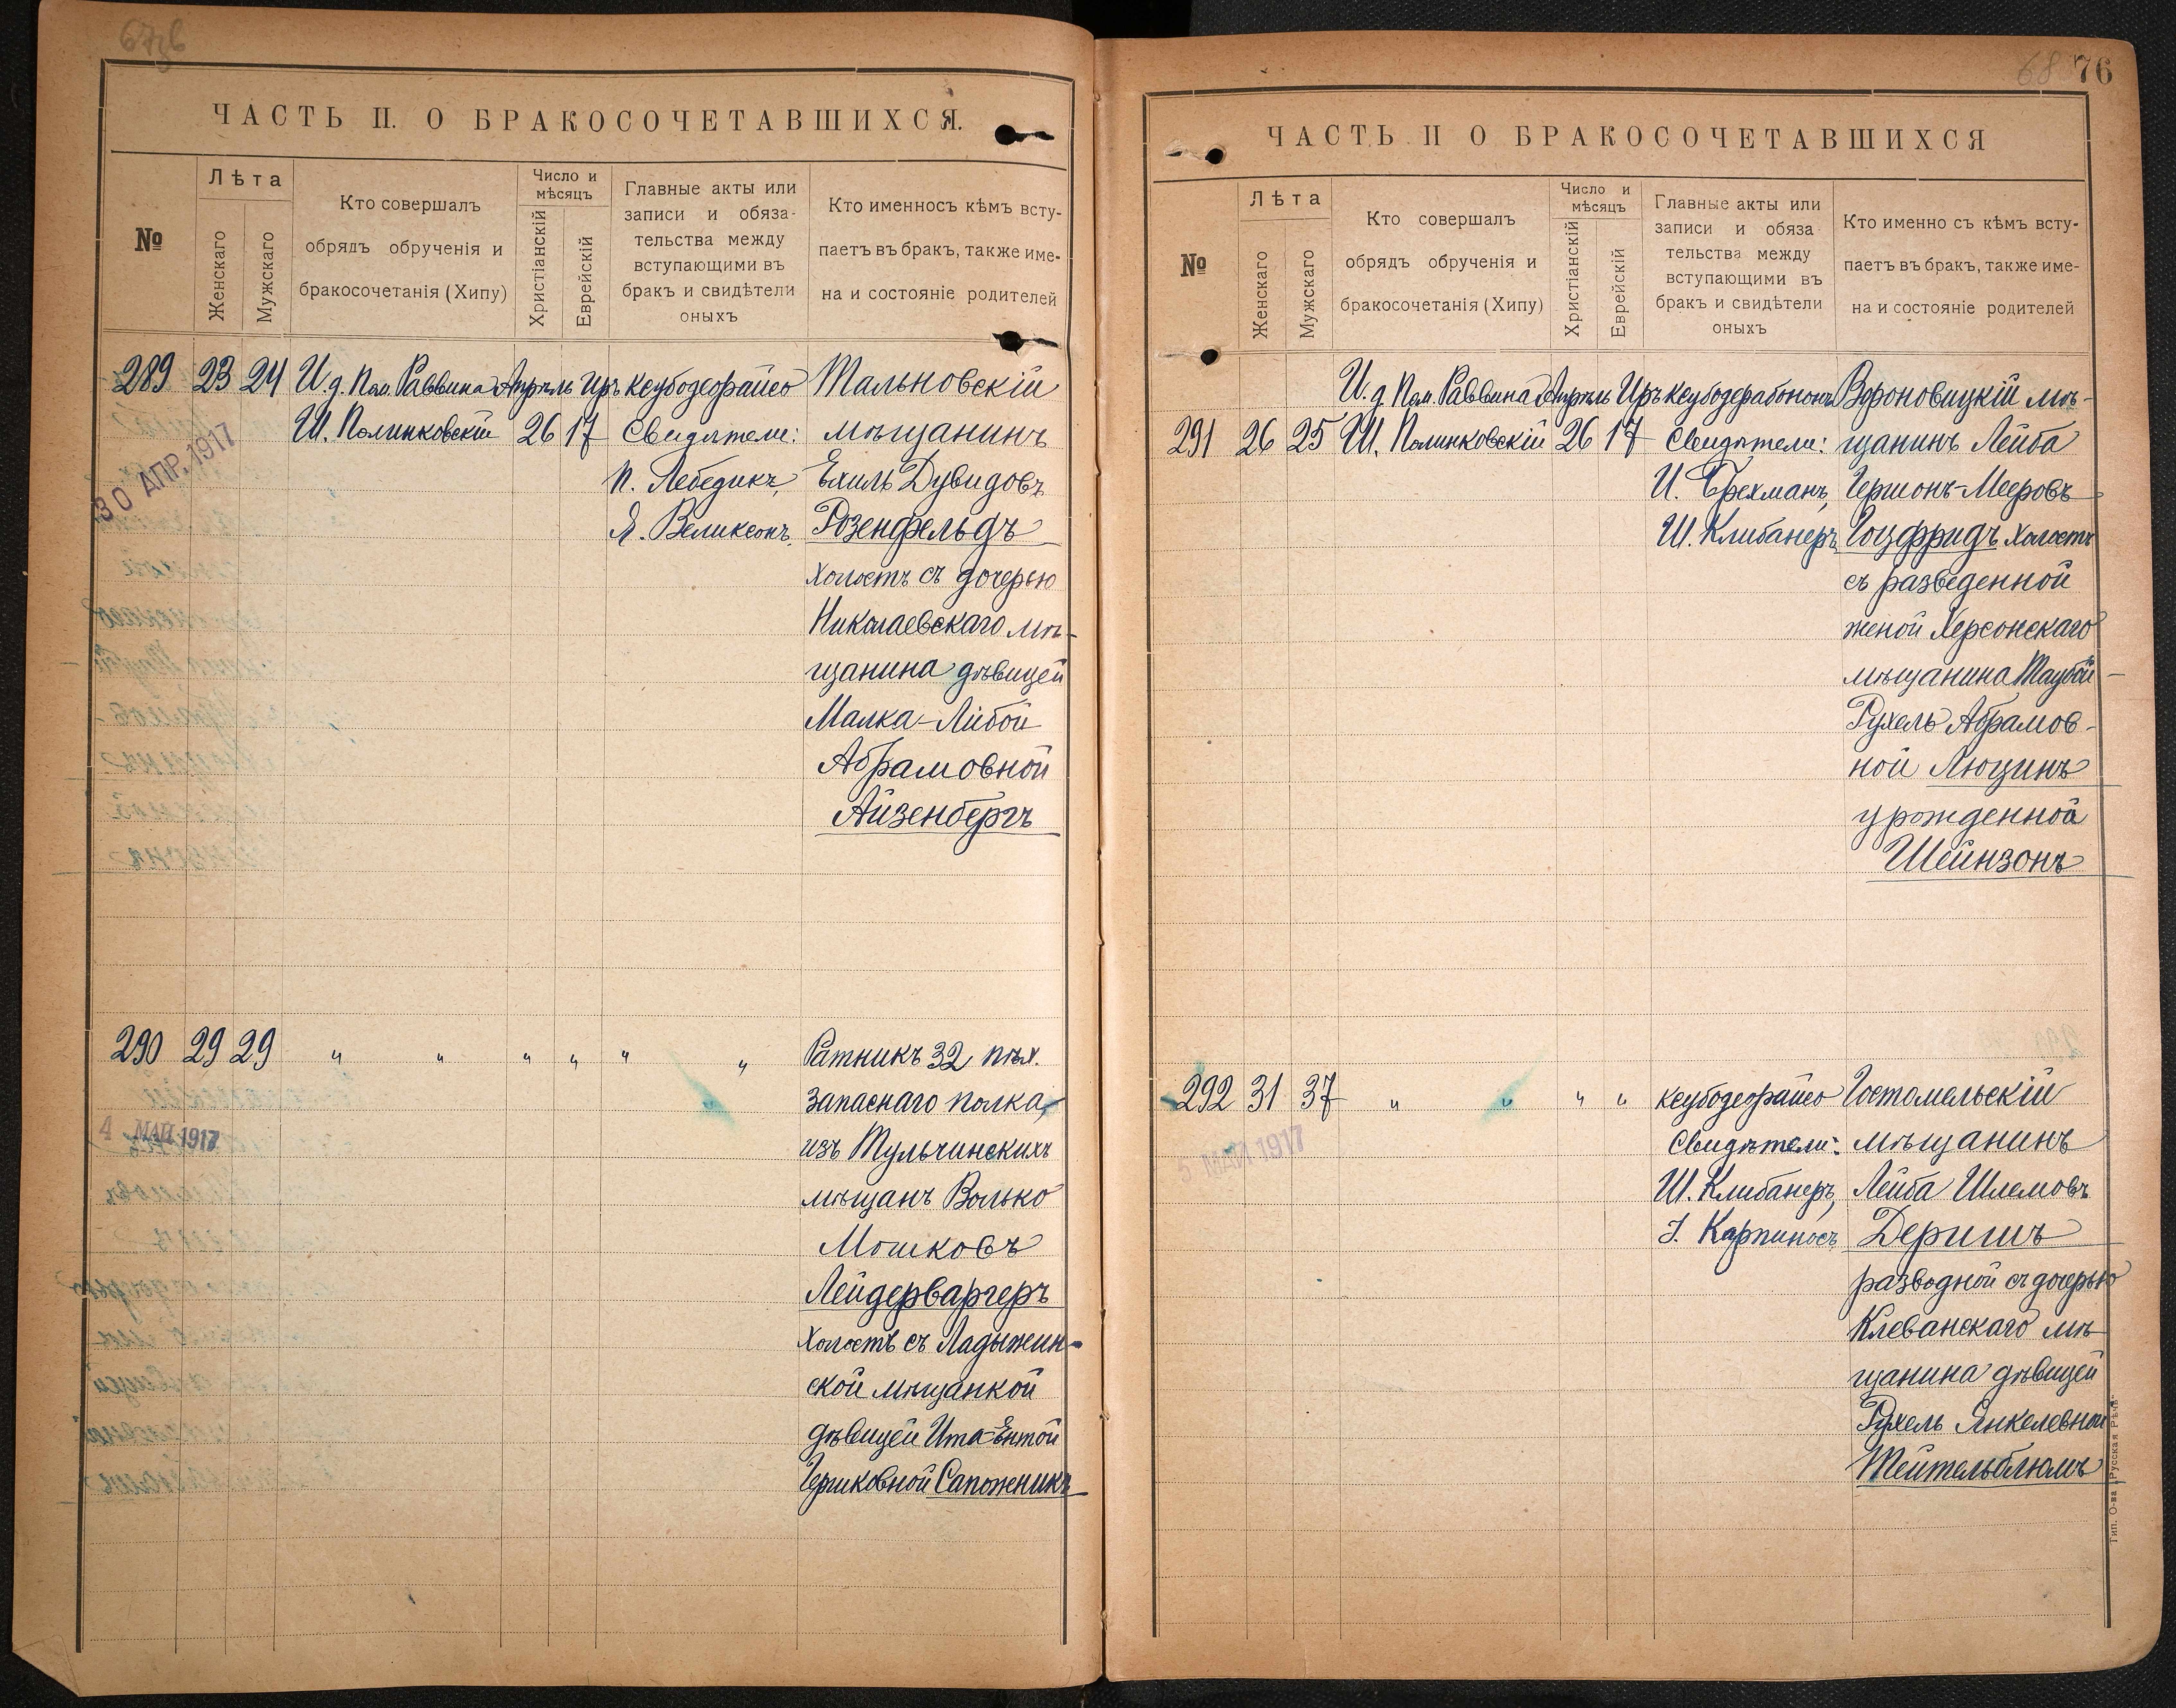 ЧАСТЬ II. О БРАКОСОЧЕТАВШИХСЯ.
№
Лѣта
Женскаго
Мужскаго
Кто совершалъ
обрядъ обрученія и
бракосочетанія (Хипу)
Число и
мѣсяцъ
Христіанскій
Еврейскій
Главные акты или
записи и обяза-
тельства между
вступающими въ
бракъ и свидѣтели
оныхъ
Кто именносъ кѣмъ всту-
паетъ въ бракъ, также име-
на и состояніе родителей
289 23 24 И. д. Пом. Раввина Апрѣль Иръ Ксубодеорайсо Тальновскій
Ш. Полинковскій 26 17 Свидѣтели: мѣщанинъ
30 АПР. 1917
П. Лебедикъ, Ехиль Дувидовъ
Я. Великсонъ. Розенфельдъ
холостъ съ дочерью
Николаевскаго мѣ-
щанина дѣвицей
Малка-Либой
Абрамовной
Айзенбергъ
290 29 29 " " " " " " Ратникъ 32 пѣх.
запаснаго полка,
4 МАЙ 1917
изъ Тульчинскихъ
мѣщанъ Волько
Мошковъ
Лейдерваргеръ
холостъ съ Ладыжин-
ской мѣщанкой
дѣвицей Ита-Ентой
Гершковной Сапожникъ
68 76
ЧАСТЬ II О БРАКОСОЧЕТАВШИХСЯ
№
Лѣта
Женскаго
Мужскаго
Кто совершалъ
обрядъ обрученія и
бракосочетанія (Хипу)
Число и
мѣсяцъ
Христіанскій
Еврейскій
Главные акты или
записи и обяза
тельства между
вступающими въ
бракъ и свидѣтели
оныхъ
Кто именно съ кѣмъ всту-
паетъ въ бракъ, также име-
на и состояніе родителей
И. д. Пом. Раввина Апрѣль Иръ Ксубодерабононъ Вороновицкій мѣ-
291 26 25 Ш. Полинковскій 26 17 Свидѣтели: щанинъ Лейба
И. Брехманъ, Гершонъ-Мееровъ
Ш. Клибанеръ, Гоцфридъ холостъ
съ разведенной
женой Херсонскаго
мѣщанина Таубой-
Рухель Абрамов-
ной Люцинъ
урожденной
Шейнзонъ
292 31 37 " " " " Ксубодеорайсо Гостомельскій
5 МАЙ 1917
Свидѣтели: мѣщанинъ
Ш. Клибанеръ, Лейба Шлемовъ
І. Карпиносъ. Деришъ
разводной съ дочерью
Клеванскаго мѣ-
щанина дѣвицей
Рухель Янкелевной
Тейтельблюмъ
Тип. О-ва „Русская Рѣчь“